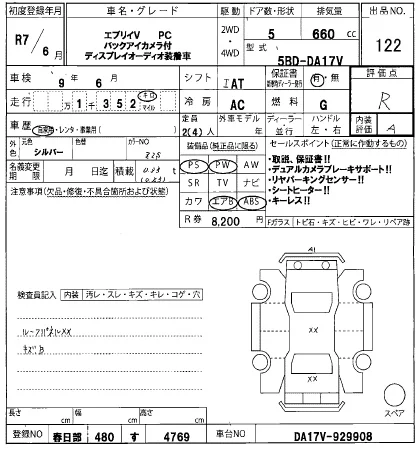 初度登録年月
車名・グレード
駆動
ドア数・形状
排気量
出品NO.
R7/6月
エブリイV PC
バックアイカメラ付
ディスプレイオーディオ装着車
2WD
・
4WD
5
660 cc
122
型式
5BD-DA17V
車検
9年6月
シフト
IAT
保証書
有・無
評価点
R
走行
万1千352
キロ
マイル
冷房
AC
燃料
G
車歴
自家用・レンタ・事業用( )
定員
2(4)人
外車モデル
年
ディーラー
・
並行
ハンドル
左・右
内装
評価
A
外色
元色
シルバー
色替
カラーNO
名義変更
期限
月 日迄
積載
装備品 (純正品に限る)
PS PW AW
SR TV ナビ
カワ エアB ABS
R券 8,200円
セールスポイント (正常に作動するもの)
・取説、保証書!!
・デュアルカメラブレーキサポート!!
・リヤパーキングセンサー!!
・シートヒーター!!
・キーレス!!
注意事項 (欠品・修復・不具合箇所および状態)
Fガラス トビ石・キズ・ヒビ・ワレ・リペア跡
検査員記入
内装
汚レ・スレ・キズ・キレ・コゲ・穴
ルーフパネルXX
キズB
A1
XX
XX
スペア
長さ cm
幅 cm
高さ cm
登録NO
春日部 480 す 4769
車台NO
DA17V-929908